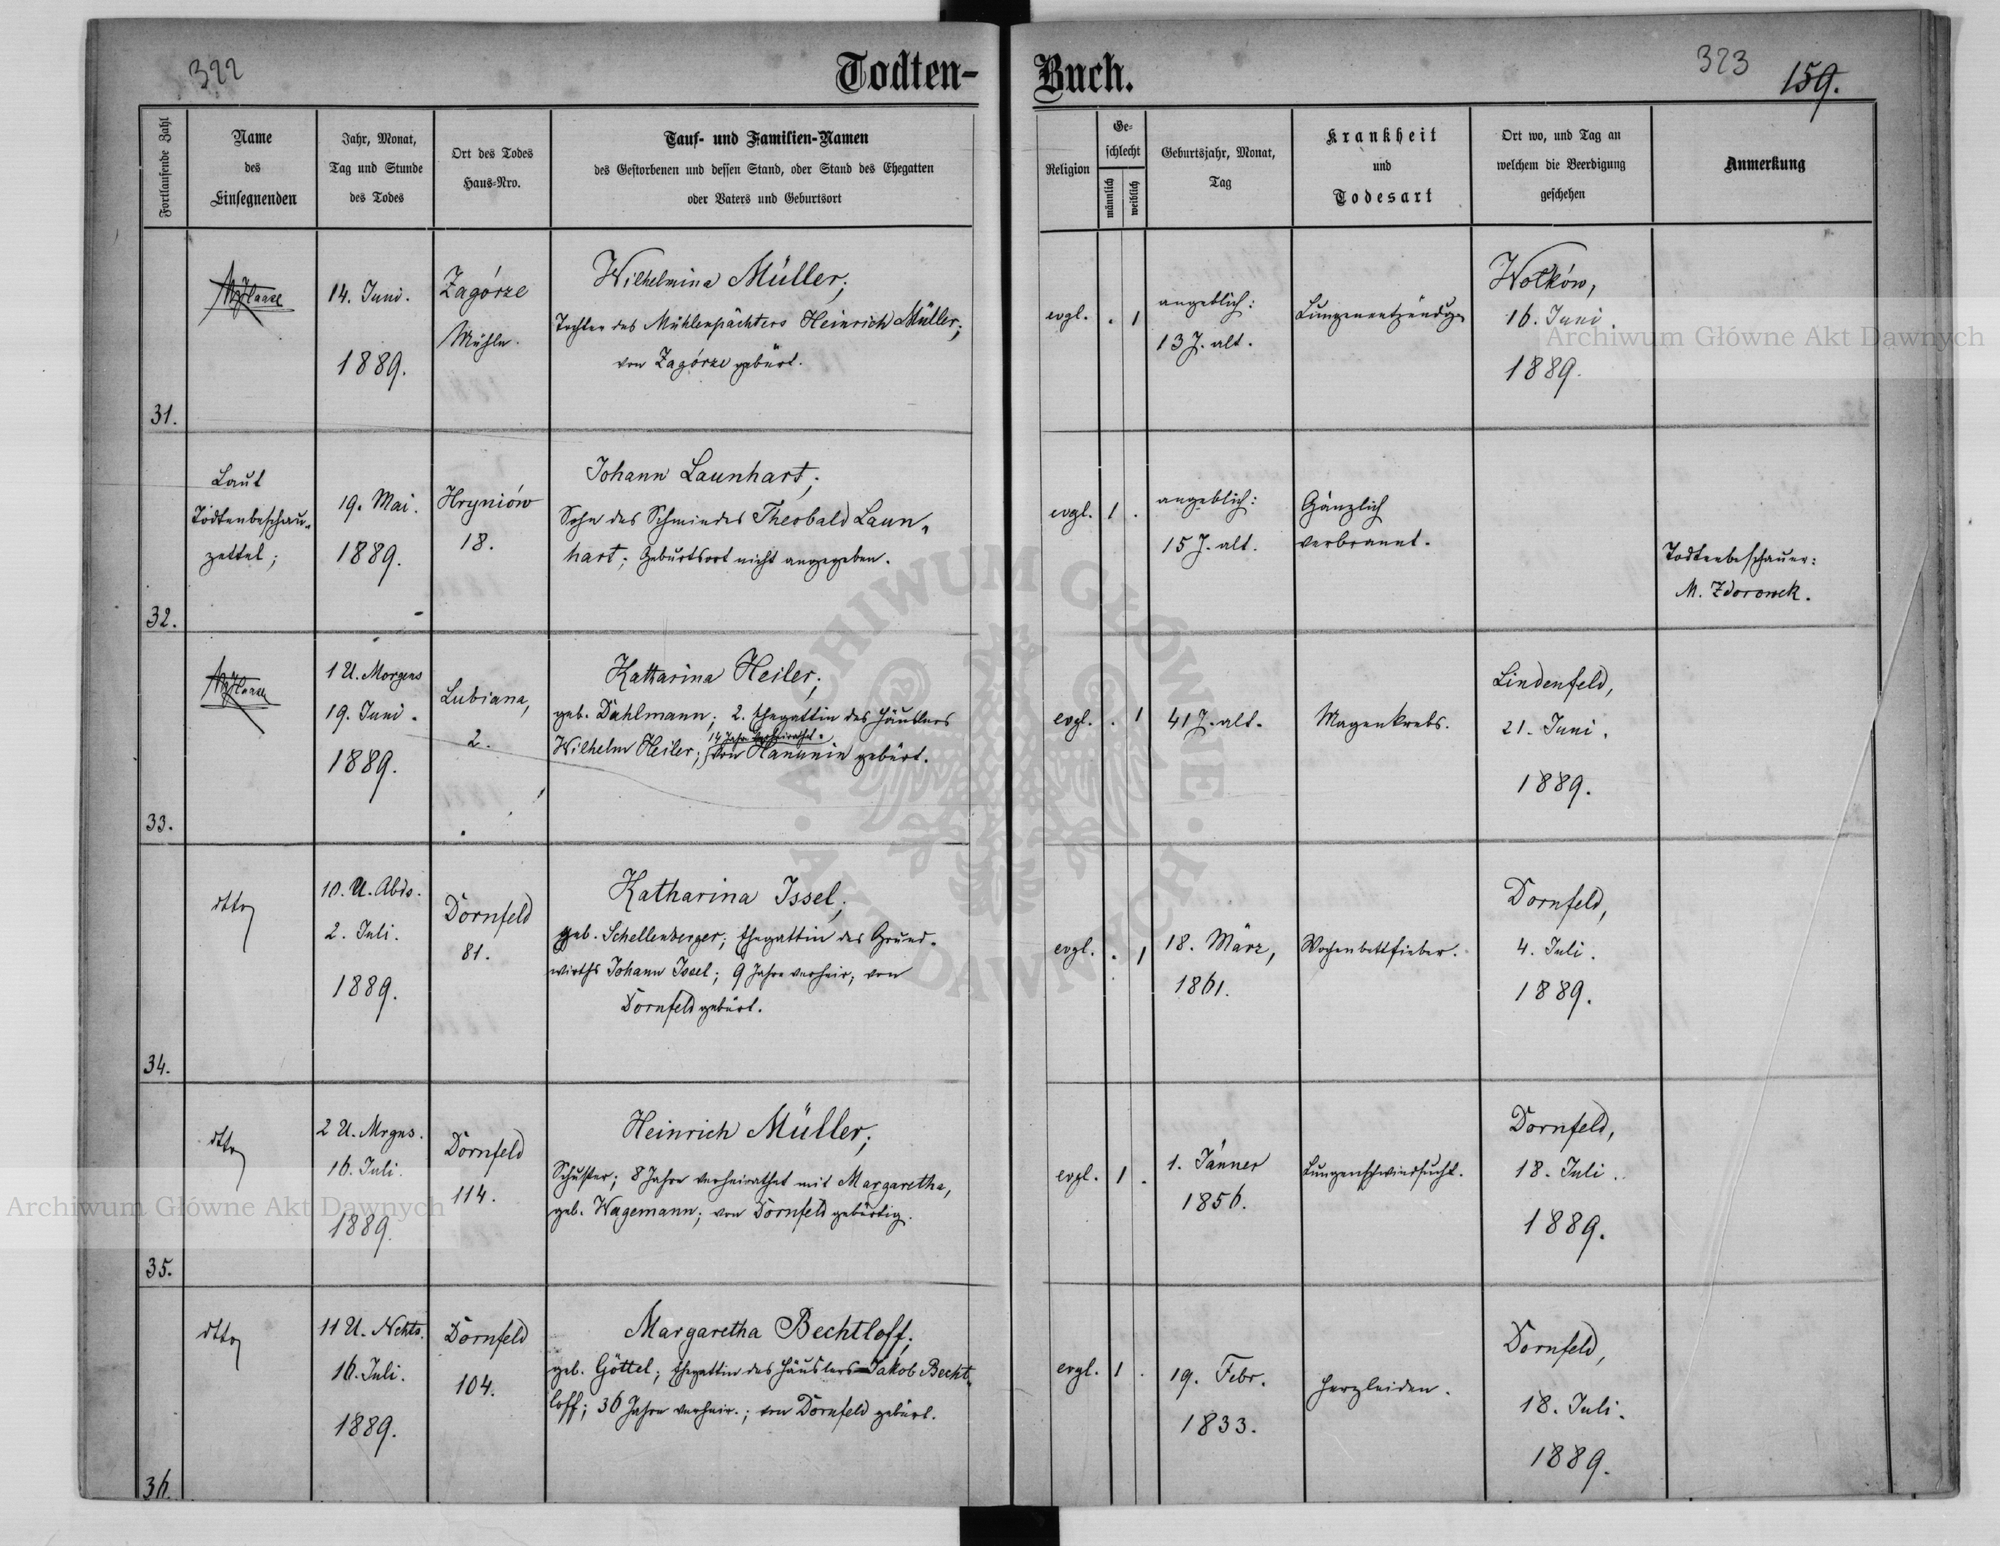 322
Todten-
Buch.
323
159.
Fortlaufende Zahl
Name
des
Einsegnenden
Jahr, Monat,
Tag und Stunde
des Todes
Ort des Todes
Haus-Nro.
Tauf- und Familien-Namen
des Gestorbenen und dessen Stand, oder Stand des Ehegatten
oder Vaters und Geburtsort
Religion
Ge-
schlecht
männlich
weiblich
Geburtsjahr, Monat,
Tag
Krankheit
und
Todesart
Ort wo, und Tag an
welchem die Beerdigung
geschehen
Anmerkung
31.
14. Juni.
1889.
Zagórze
Mühle.
Wilhelmina Müller;
Tochter des Mühlenpächters Heinrich Müller;
von Zagórze gebürt.
evgl.
. 1
angeblich:
13 J. alt.
Lungenentzündg.
Wołków,
16. Juni.
1889.
32.
Laut
Todtenbeschau-
zettel;
19. Mai.
1889.
Hryniów
18.
Johann Launhart;
Sohn des Schmiedes Theobald Laun-
hart; Geburtsort nicht angegeben.
evgl.
1 .
angeblich:
15 J. alt.
Gänzlich
verbrannt.
Todtenbeschauer:
M. Zdorowek.
33.
1 U. Morgens
19. Juni.
1889.
Lubiana,
2.
Katharina Heiler;
geb. Dahlmann; 2. Ehegattin des Häuslers
14 Jahre verheirathet.
Wilhelm Heiler; von Hanunin gebürt.
evgl.
. 1
41 J. alt.
Magenkrebs.
Lindenfeld,
21. Juni.
1889.
34.
dtto
10. U. Abds.
2. Juli.
1889.
Dornfeld
81.
Katharina Issel;
geb. Schellenberger; Ehegattin des Grund-
wirths Johann Issel; 9 Jahre verheir; von
Dornfeld gebürt.
evgl.
. 1
18. März,
1861.
Wochenbettfieber.
Dornfeld,
4. Juli.
1889.
35.
dtto
2 U. Mrgns.
16. Juli.
1889.
Dornfeld
114.
Heinrich Müller;
Schuster; 8 Jahre verheirathet mit Margaretha,
geb. Wagemann; von Dornfeld gebürtig.
evgl.
1 .
1. Jänner
1856.
Lungenschwindsucht.
Dornfeld,
18. Juli.
1889.
36.
dtto
11 U. Nchts.
16. Juli.
1889.
Dornfeld
104.
Margaretha Bechtloff;
geb. Göttel; Ehegattin des Häuslers Jakob Becht-
loff; 36 Jahre verheir.; von Dornfeld gebürt.
evgl.
1 .
19. Febr.
1833.
Herzleiden.
Dornfeld,
18. Juli.
1889.
Archiwum Główne Akt Dawnych
Archiwum Główne Akt Dawnych
ARCHIWUM GŁÓWNE · AKT DAWNYCH ·